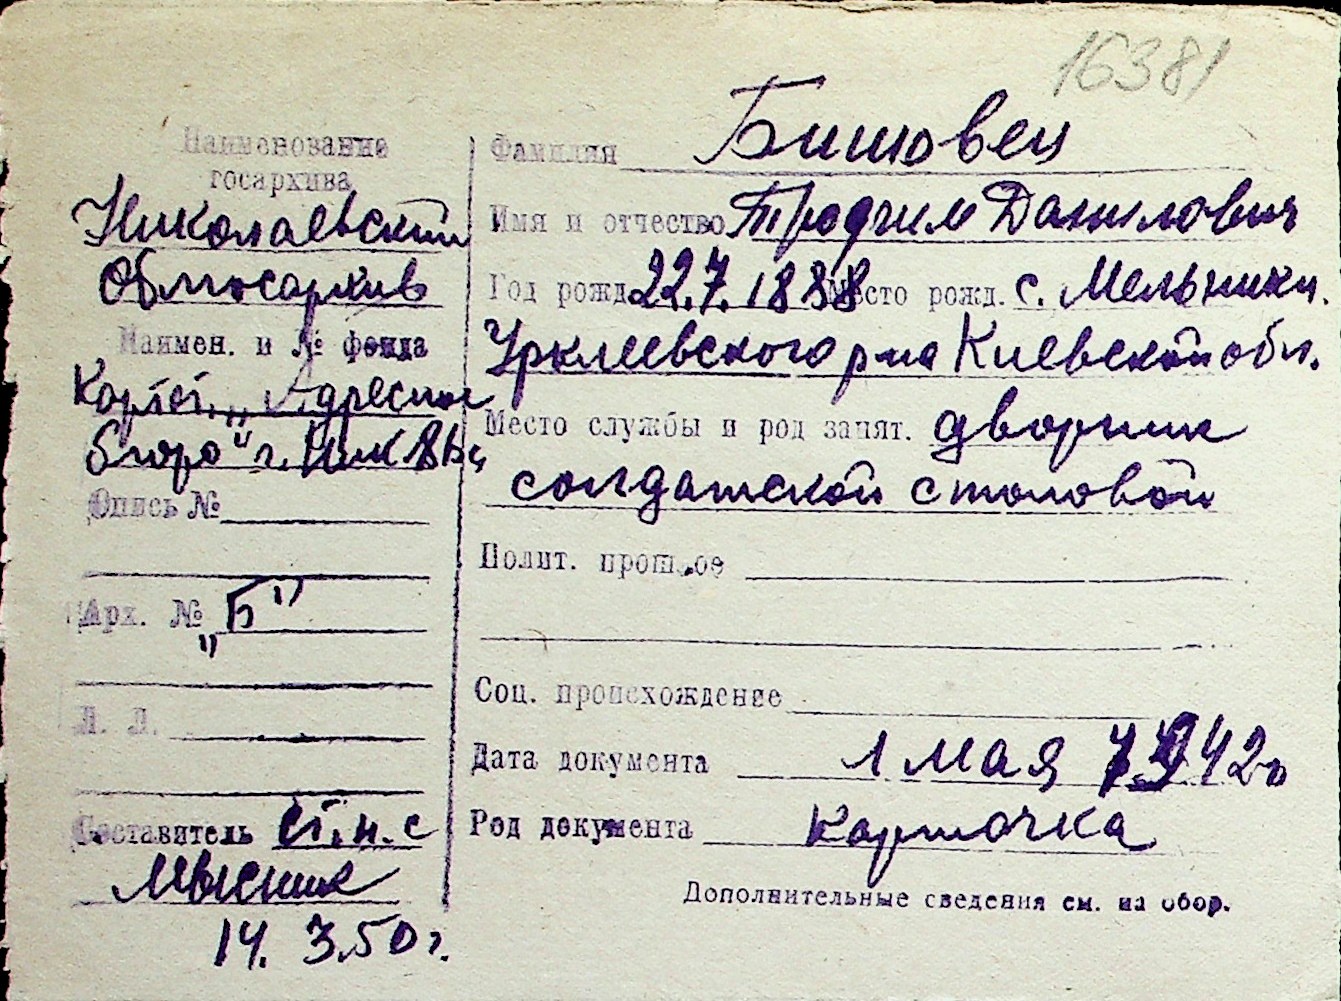 16381
Наименование
госархива
Николаевский
Облгосархив
Наимен. и № фонда
Картот. „Адресное
бюро" г. Ник
Опись №
Арх. № „Б"
Л. Л.
Составитель ст. н. с
14. 3.50 г.
Фамилия Бишовец
Имя и отчество Трофим Данилович
Год рожд. 22.7.1888 Место рожд. с. Мельники.
Ирклеевского р-на Киевской обл.
Место службы и род занят. дворник
солдатской столовой
Полит. прошлое
Соц. происхождение
Дата документа 1 мая 1942г
Род документа карточка
Дополнительные сведения см. на обор.